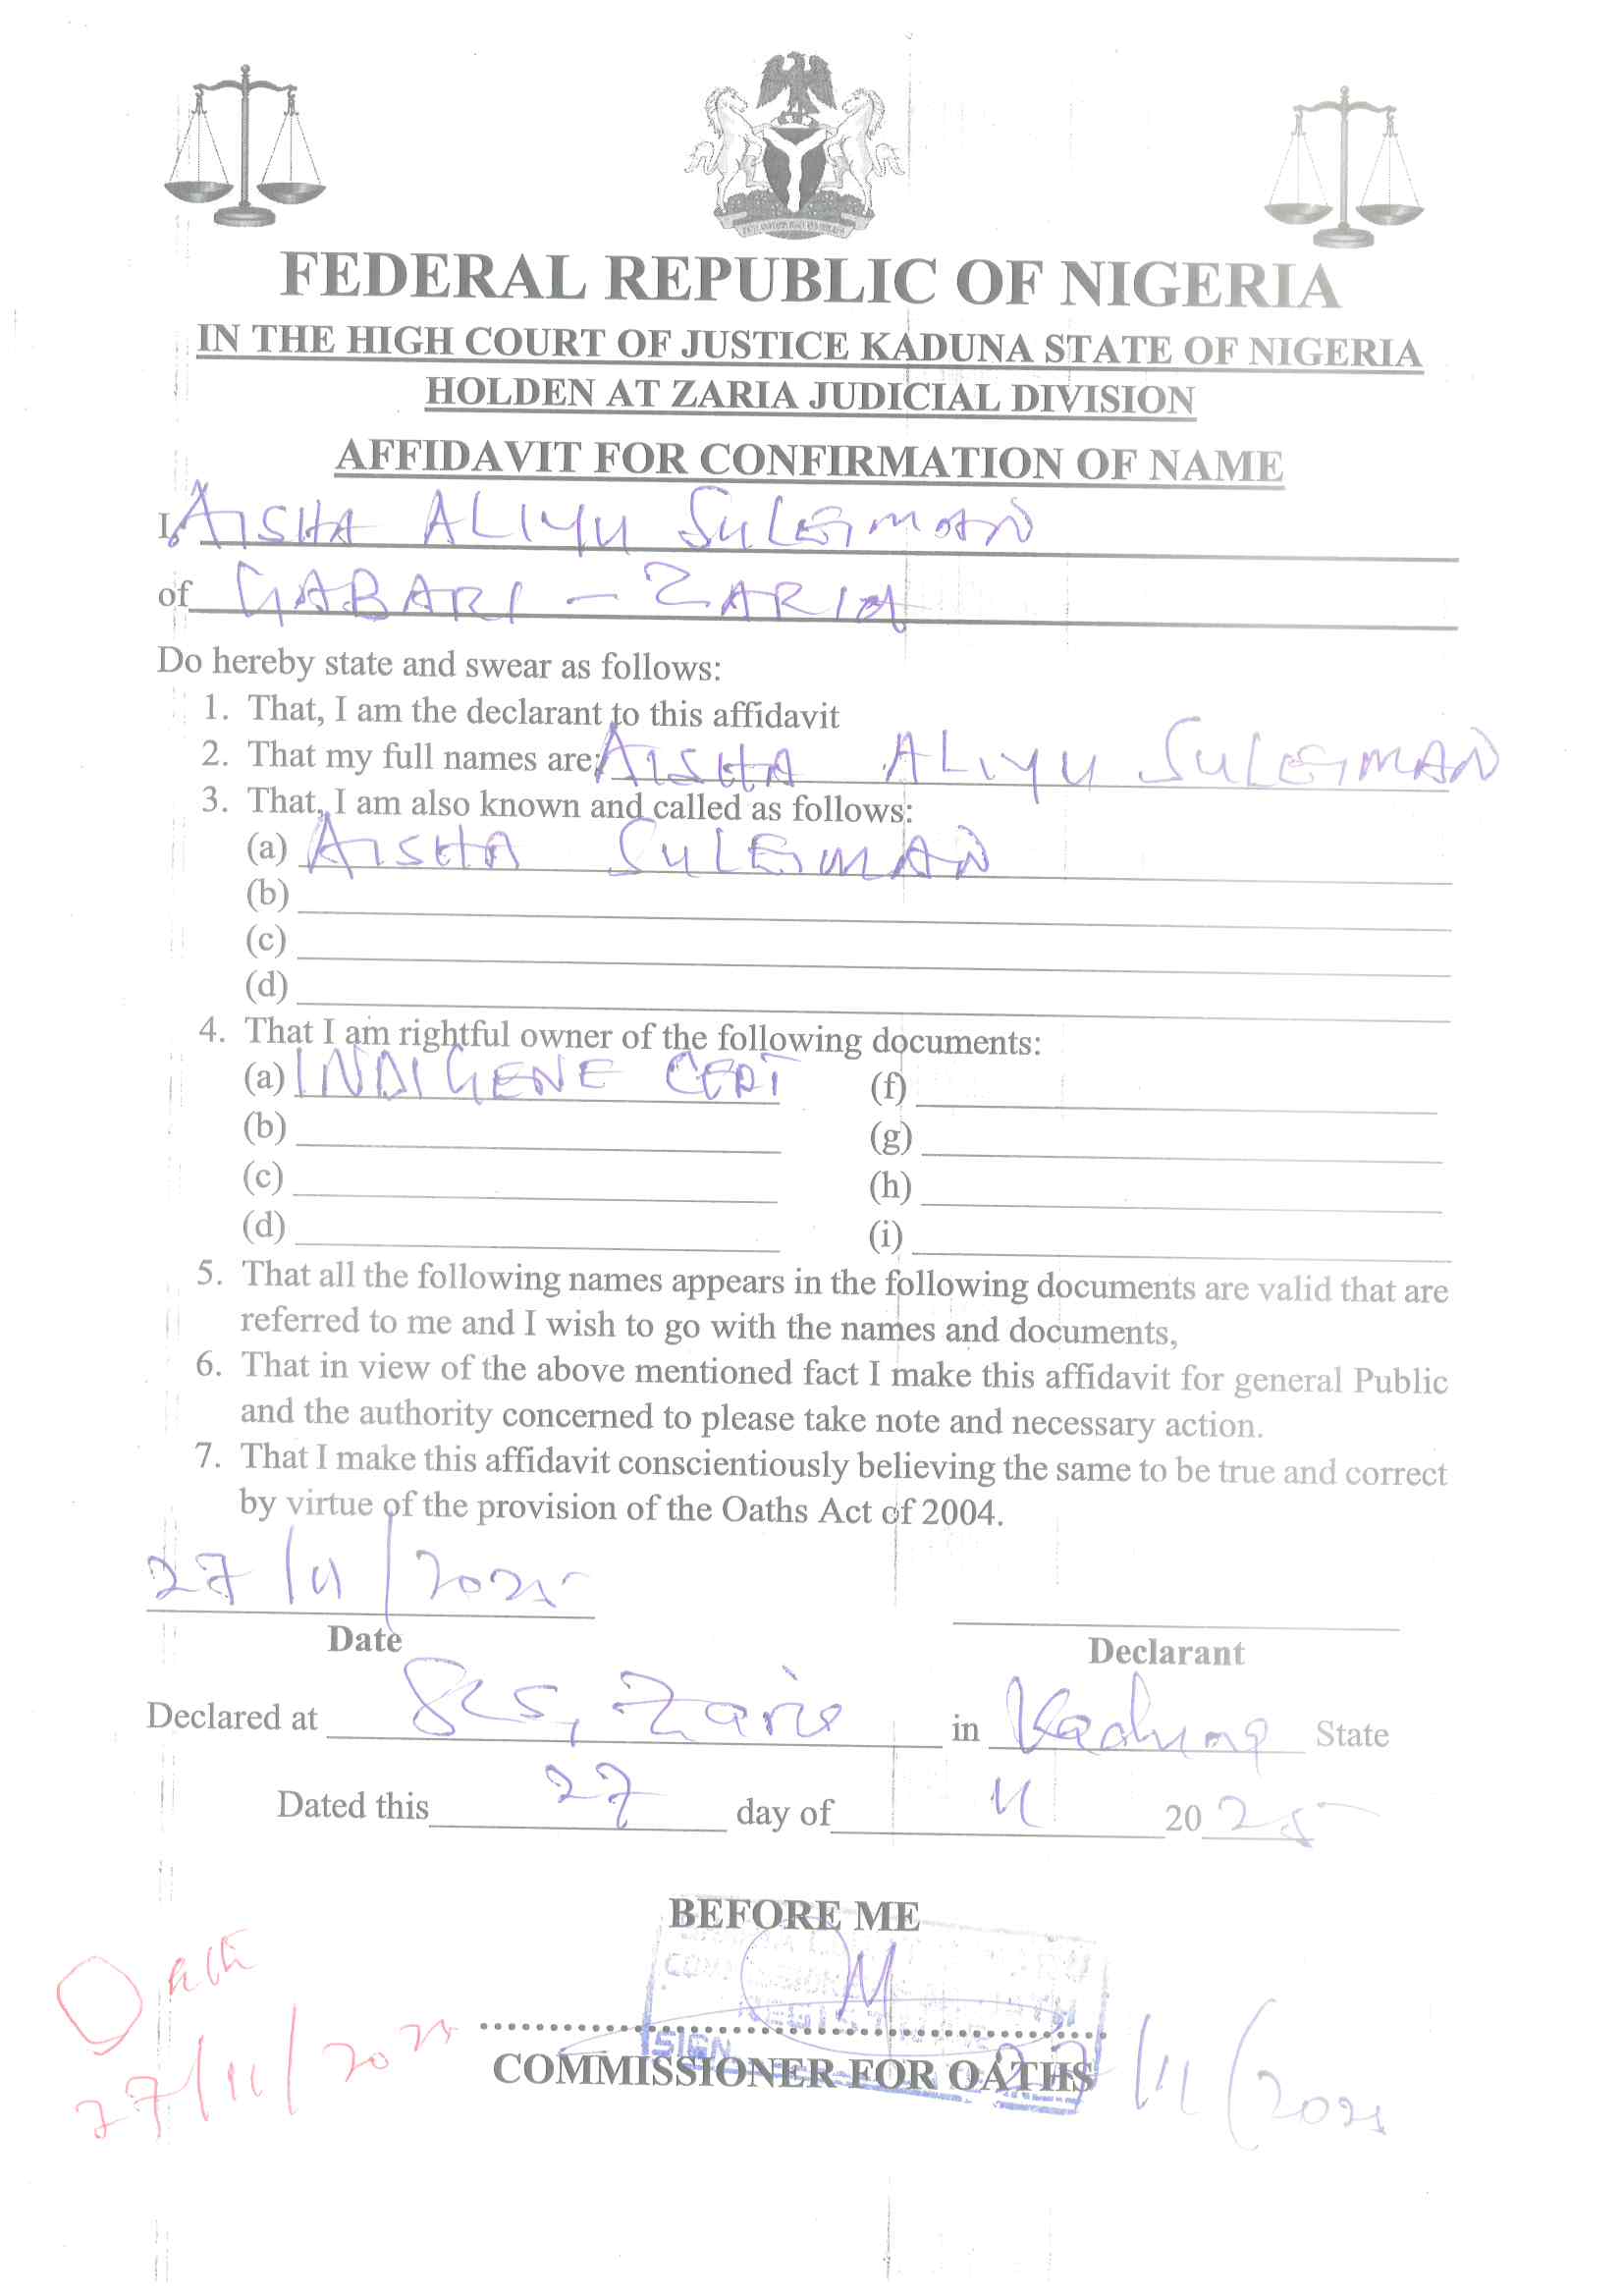 FEDERAL REPUBLIC OF NIGERIA
IN THE HIGH COURT OF JUSTICE KADUNA STATE OF NIGERIA
HOLDEN AT ZARIA JUDICIAL DIVISION
AFFIDAVIT FOR CONFIRMATION OF NAME
I, AISHA ALIYU SULEIMAN
of GABARI - ZARIA
Do hereby state and swear as follows:
1. That, I am the declarant to this affidavit
2. That my full names are; AISHA ALIYU SULEIMAN
3. That, I am also known and called as follows:
(a) AISHA SULEIMAN
(b)
(c)
(d)
4. That I am rightful owner of the following documents:
(a) INDIGENE CERT (f)
(b) (g)
(c) (h)
(d) (i)
5. That all the following names appears in the following documents are valid that are
referred to me and I wish to go with the names and documents,
6. That in view of the above mentioned fact I make this affidavit for general Public
and the authority concerned to please take note and necessary action.
7. That I make this affidavit conscientiously believing the same to be true and correct
by virtue of the provision of the Oaths Act of 2004.
27/11/2025
Date Declarant
Declared at Zaria in Kaduna State
Dated this 27 day of 11 2025
BEFORE ME
Oath
27/11/2025
SIGN
COMMISSIONER FOR OATHS 27/11/2025